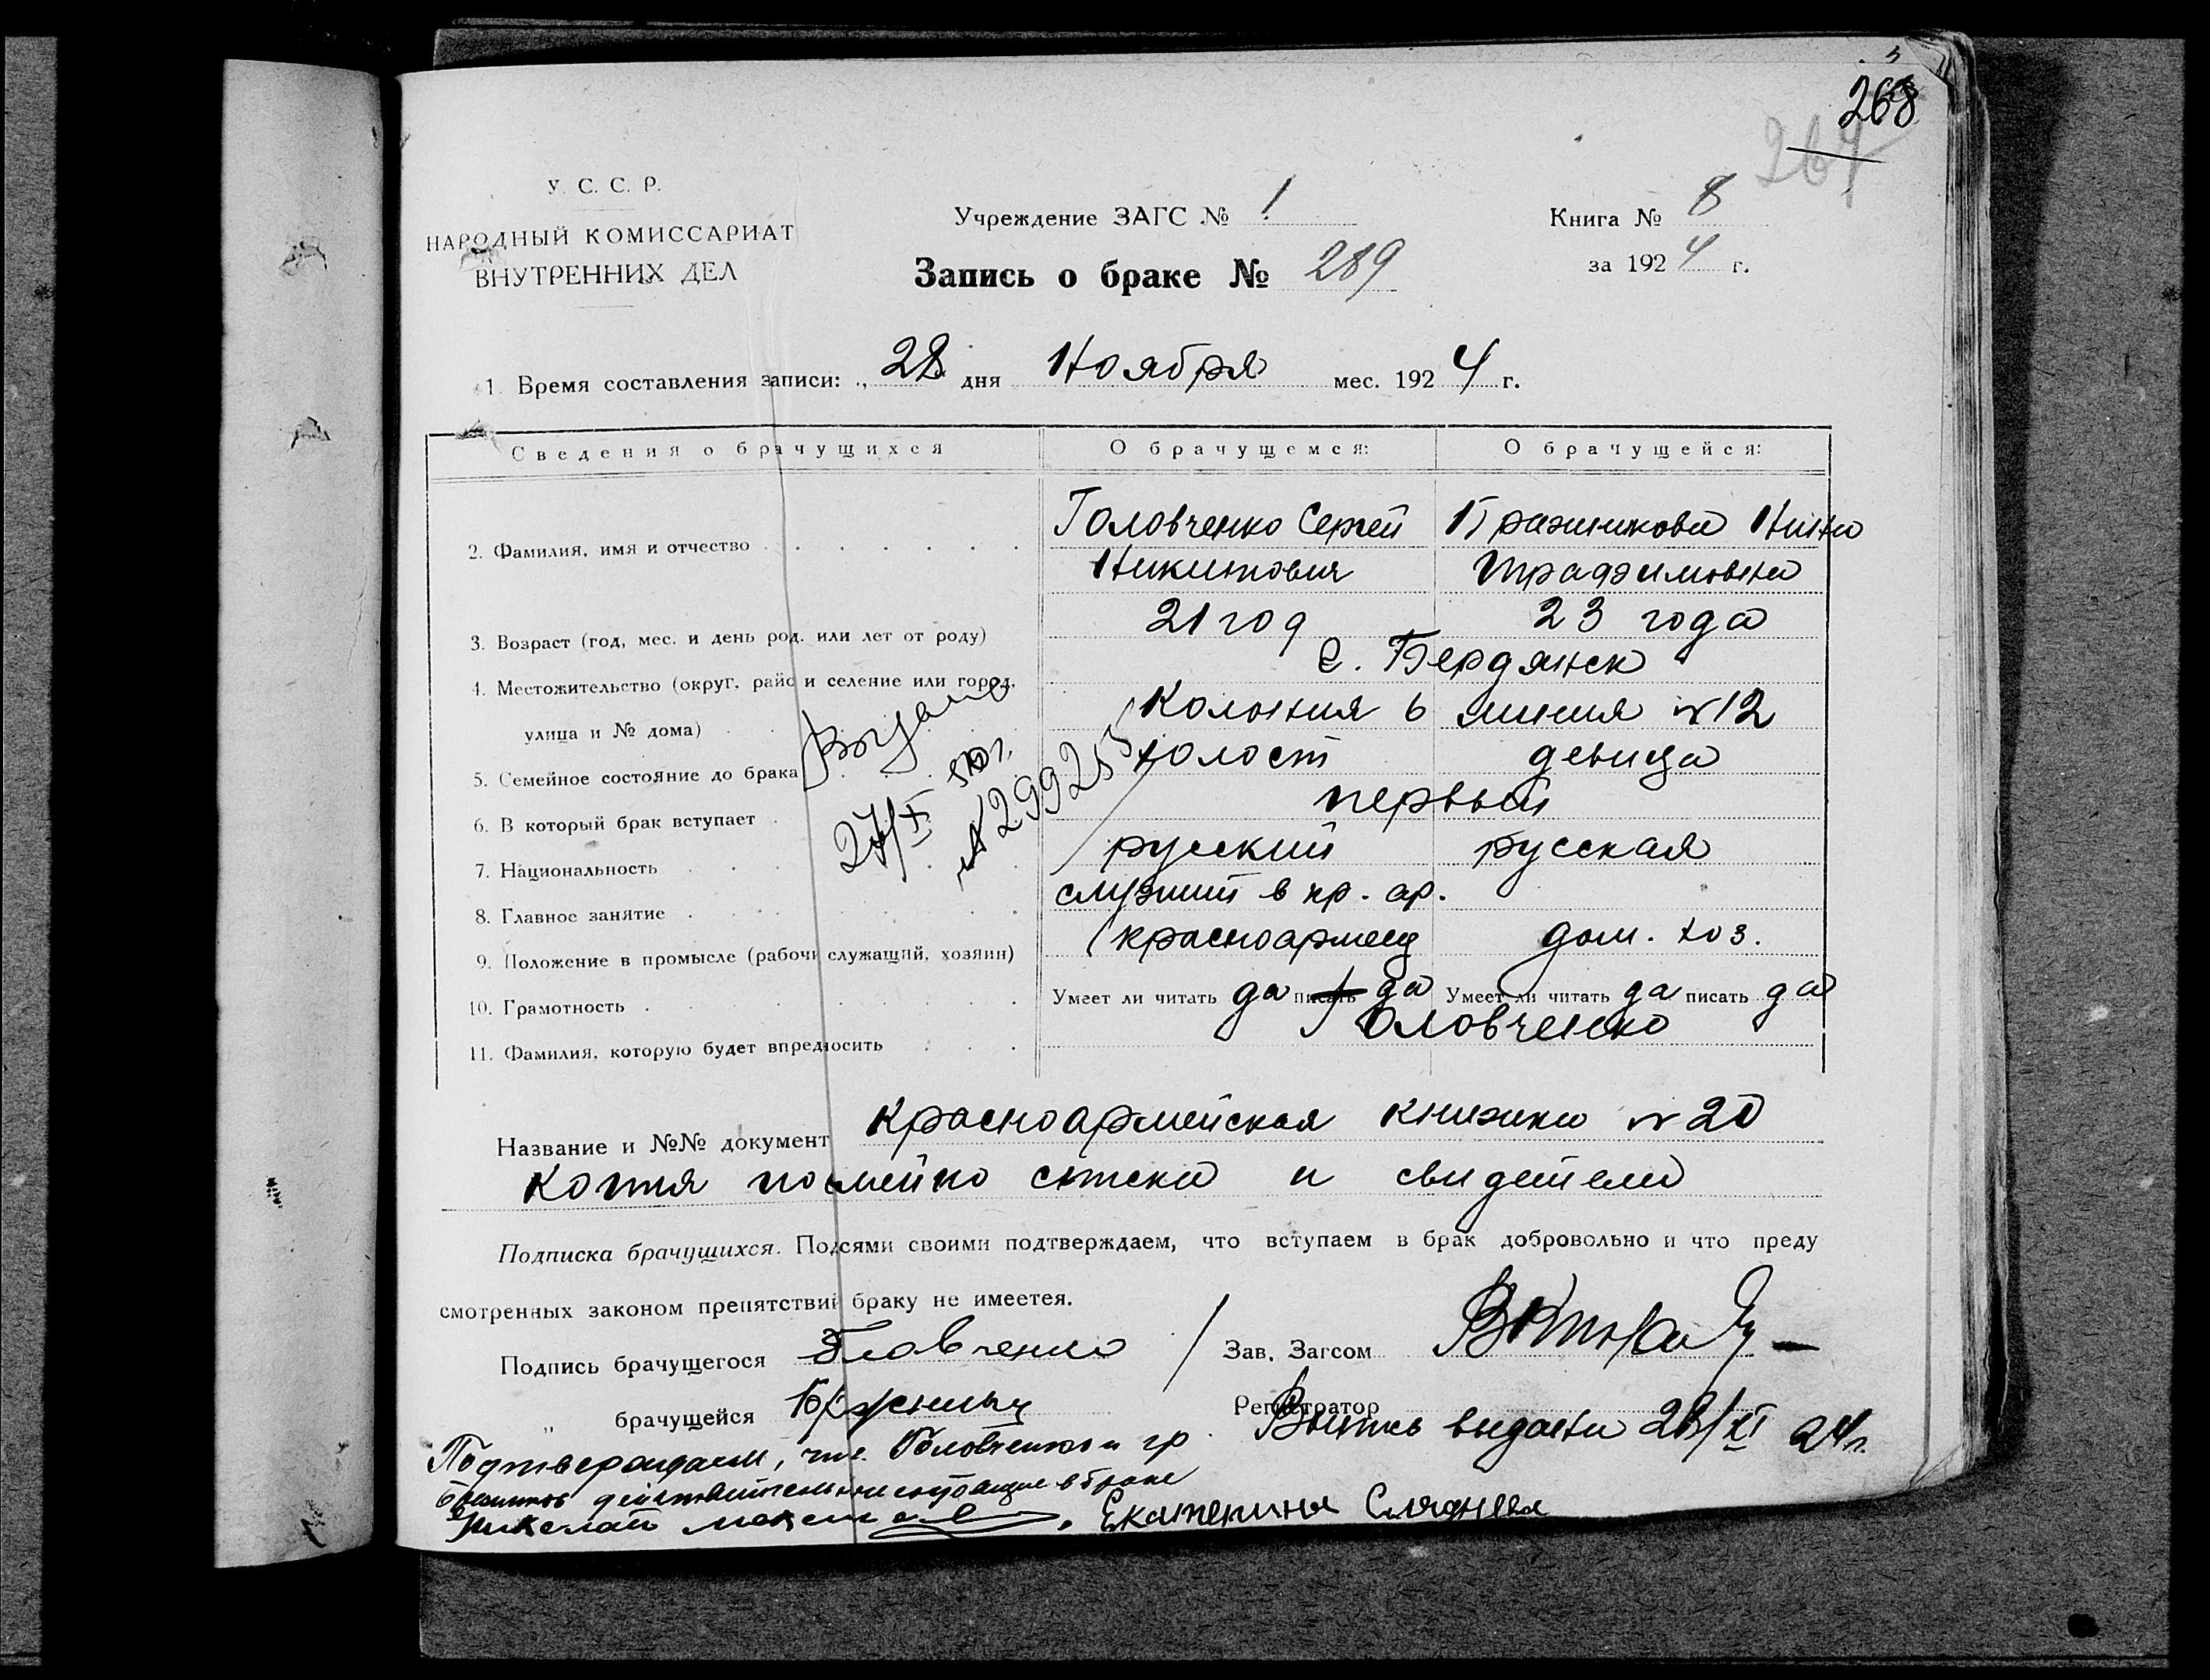 268
267
У. С. С. Р.
НАРОДНЫЙ КОМИССАРИАТ
ВНУТРЕННИХ ДЕЛ
Учреждение ЗАГС № 1
Книга № 8
Запись о браке № 289
за 1924 г.
1. Время составления записи: „ 28 дня Ноября мес. 1924 г.
Сведения о брачущихся О брачущемся: О брачущейся:
2. Фамилия, имя и отчество Головченко Сергей Бражникова Нина
Никитович Трафимовна
3. Возраст (год, мес. и день род. или лет от роду) 21 год 23 года
4. Местожительство (округ, райо и селение или город, г. Бердянск
улица и № дома) Колония 6 линия № 12
5. Семейное состояние до брака холост девица
6. В который брак вступает первый
7. Национальность русский русская
8. Главное занятие служит в кр. ар.
9. Положение в промысле (рабочи служащий, хозяин) красноармеец дом. хоз.
10. Грамотность Умеет ли читать да писать да Умеет ли читать да писать да
11. Фамилия, которую будет впредносить Головченко
27/X
№ 299253
Название и №№ документ красноармейская книжка № 20
копия посмейно списка и свидетели
Подписка брачущихся. Подсями своими подтверждаем, что вступаем в брак добровольно и что преду
смотренных законом препятствий браку не имеетея.
Подпись брачущегося Головченко Зав. Загсом
„ брачущейся Регистратор
Выпись выдана 28/XI 24 г.
Подтверждаем, что Головченко и гр.
действительно в браке
Николай Екатерина